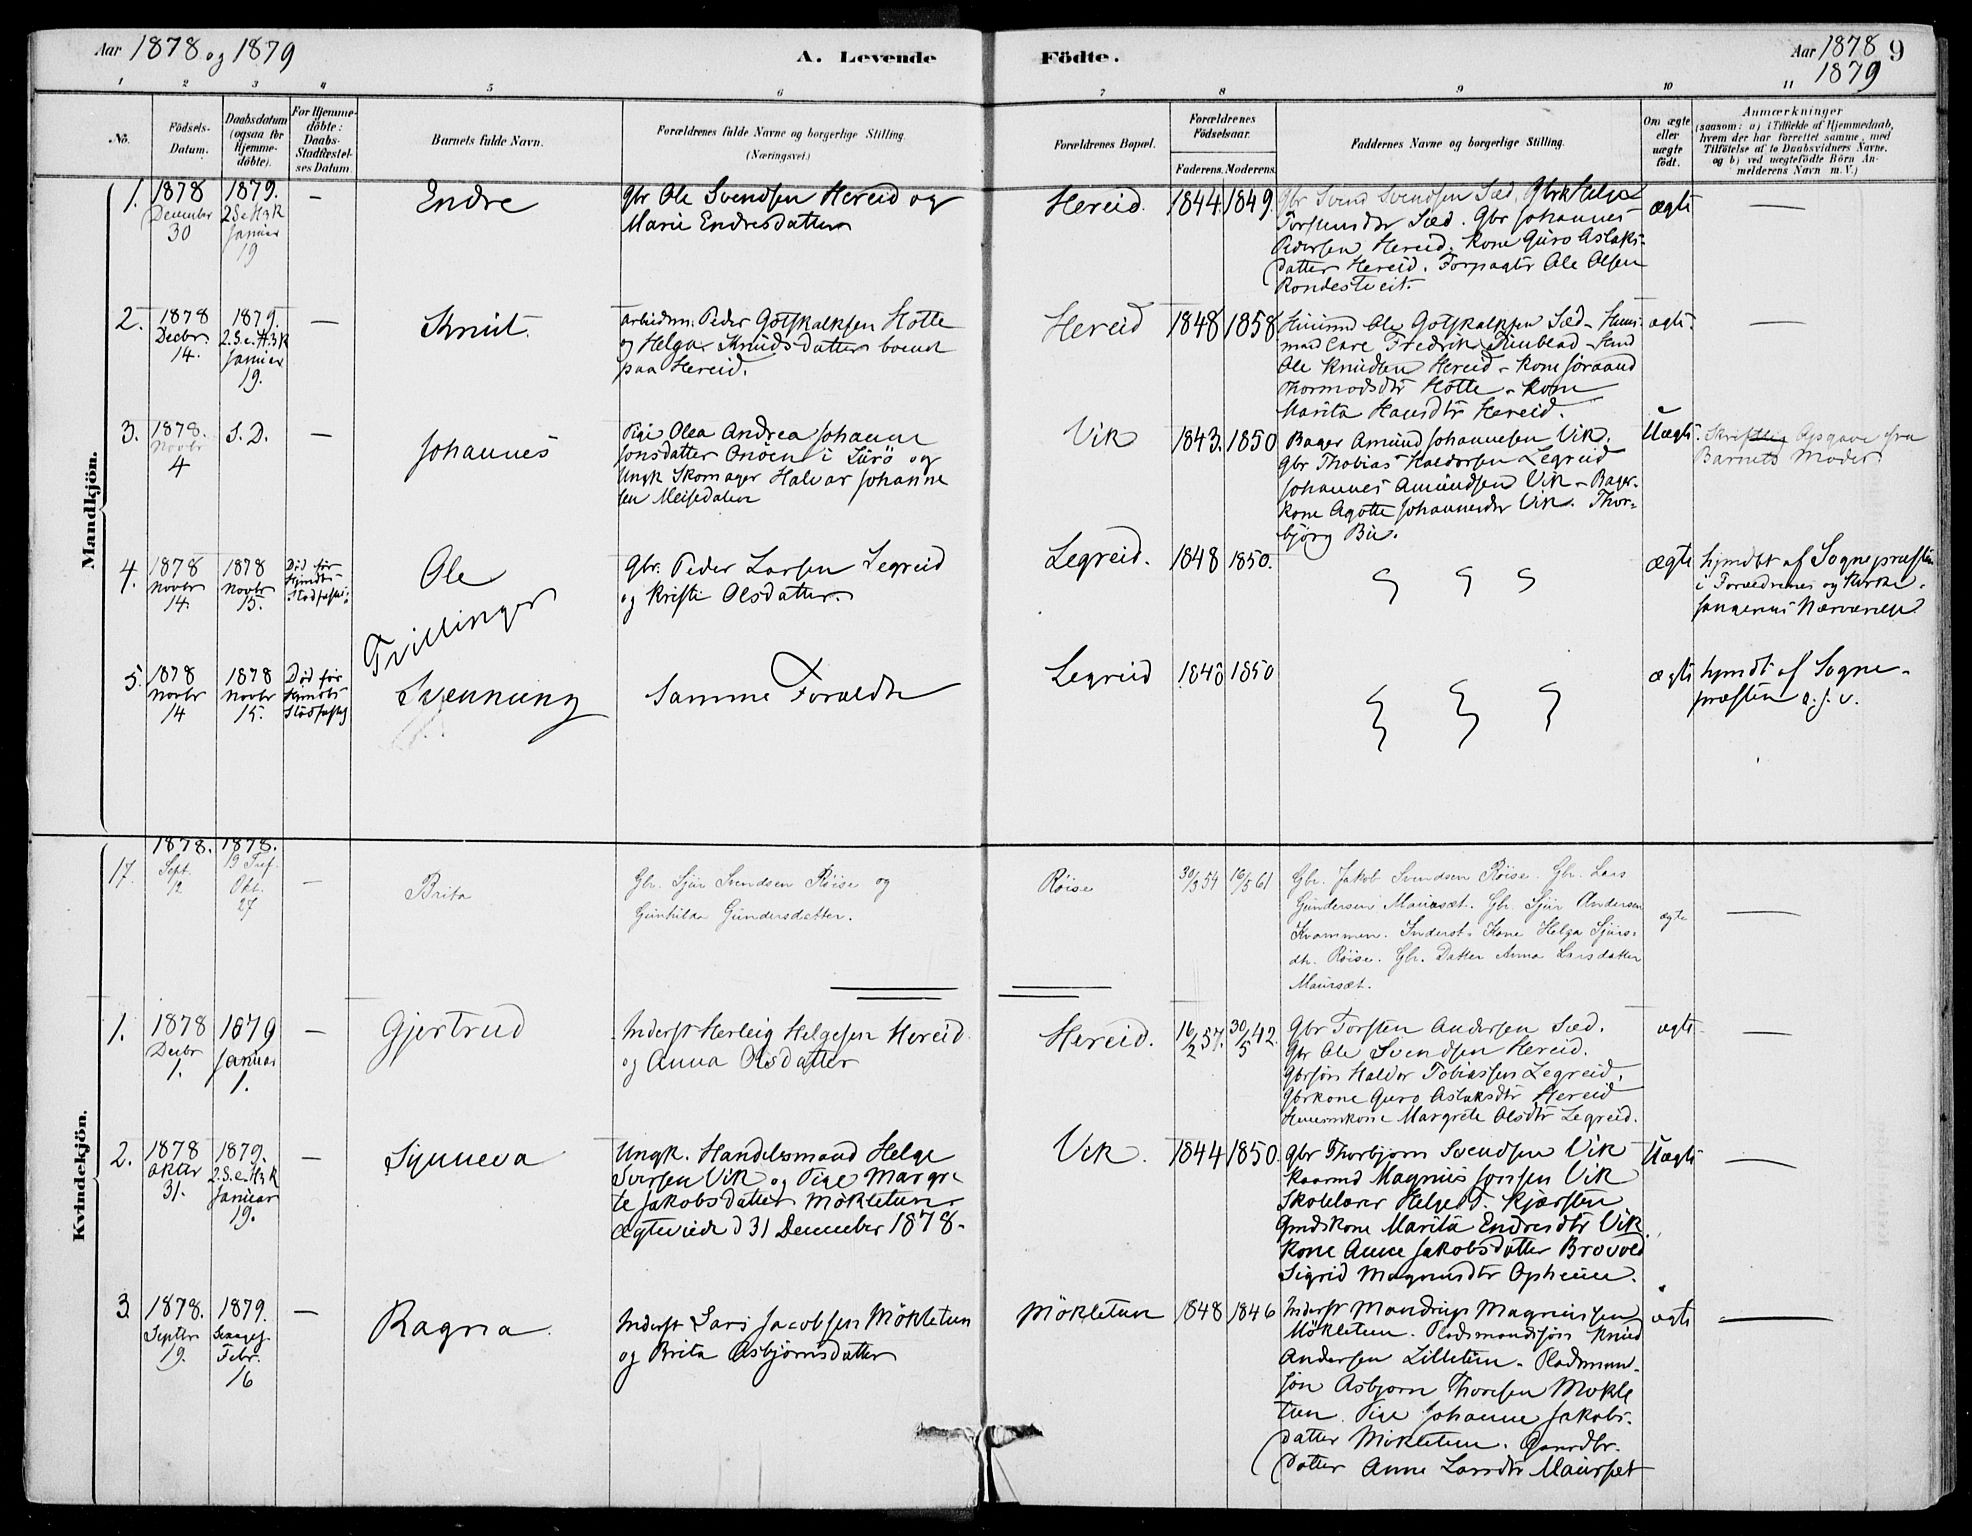 Aar 1878 og 1879
A. Levende Födte.
Aar 1878 9
1879
1 2 3 4 5 6 7 8 9 10 11
No.
Födsels-
Datum.
Daabsdatum
(ogsaa for
Hjemme-
döbte).
For Hjemme-
döbte:
Daabs-
Stadfæstel-
ses Datum
Barnets fulde Navn.
Forældrenes fulde Navne og borgerlige Stilling.
(Næringsvei.)
Forældrenes Bopæl.
Forældrenes
Födselsaar.
Faderens. Moderens.
Faddernes Navne og borgerlige Stilling.
Om ægte
eller
uægte
födt.
Anmærkninger
(saasom: a) i Tilfælde af Hjemmedaab,
hvem der har forrettet samme, med
Tilföielse af to Daabsvidners Navne.
og b) ved uægtefödte Börn An-
melderens Navn m.V.)
Mandkjön.
1.
1878
December
30
1879.
2 S e H 3 K
Januar
19
—
Endre
Gbr Ole Svendsen Hereid og
Marie Endresdatter
Hereid.
1844. 1849.
Gbr Svend Svendsen Sæd. Gbrk Helga
Torsteinsdtr Sæd. Gbr Johannes
Pedersen Hereid. Kone Guro Aslaks-
datter Hereid. Forpagter Ole Olsen
Rondestveit.
ægte
—
2.
1878
Decbr
14.
1879.
2.S.e.H.3K
Januar
19.
—
Knut.
Arbeidm. Peder Gotskalksen Hotte
og Helga Knudsdatter boende
paa Hereid.
Hereid
1848 1858
Husmd Ole Gotskalksen Sæd - Huus-
mand Carl Fredrik Tinblad -
Ole Knudsen Hereid - Kone Joraand
Thormodsdtr Hotte - Kone
Marita Hansdtr Hereid.
ægte
—
3.
1878.
Novbr
4
S. D.
—
Johannes
Pige Olea Andrea Johanne
Jonsdatter Onöen i Lurö og
Ungk Skomager Halvar Johanne
sen Meisedalen
Vik
1843. 1850
Bager Amund Johannesen Vik.
Gbr Thobias Haldorsen Legreid
Johannes Amundsen Vik - Bager-
kone Agotte Johannesdtr Vik. Thor-
björg Bu.
Uægte
Skriftlig Opgave fra
Barnets Moder.
4.
1878
Novbr
14.
1878
Novbr
15.
Död för
Stadfæst:
Ole
Tvillinger
Gbr. Peder Larsen Legreid
og Kristi Olsdatter.
Legreid.
1848 1850.
ægte
hjmdbt af Sognepræsten
i Forældrenes og Kirke-
sangerens Nærværelse
5.
1878
Novbr
14
1878
Novbr
15.
Död för
Hjmdbt
Stadfæstet
Svennung
Samme Foræeldre
Legreid
1848 1850
ægte
hjmdt af Sogne-
præsten o.s.v.
Kvindekjön.
17.
1878.
Sept.
12
1878.
19 Tref.
Okt.
27
—
Brita
Gbr. Sjur Svendsen Röise og
Gunhilda Gundersdatter.
Röise
30/3 54 16/5 61
Gbr. Jakob Svendsen Röise. Gbr. Lars
Gundersen Maursæt. Gbr. Sjur Andersen
Kvammen. Inderst. Kone Helga Sjurs-
dtr. Röise. Gbr. Datter Anna Larsdatter
Maursæt.
ægte
—
1.
1878
Decbr
1.
1879
Januar
1.
—
Gjertrud
Inderst Herleig Helgesen Hereid
og Anna Olsdatter
Hereid.
16/2 57. 30/5 42.
Gbr Torsten Andersen Sæd.
Gbr Ole Svendsen Hereid.
Gbrsön Haldor Tobiassen Legreid,
Gbrkone Guro Aslaksdtr Hereid
Huusmkone Margrete Olsdtr Legreid.
ægte
—
2.
1878
Oktbr
31.
1879.
2.S.e.H3K
Januar
19.
—
Synneva
Ungk. Handelsmand Helge
Sversen Vik og Pige Margre
te Jakobsdatter Mökletun
Ægteviede d 31 December 1878.
Vik.
1844 1850.
Gbr Thorbjörn Svendsen Vik
Kaarmd Magnus Jonsen Vik
Skolelærer Helge T. Kjærsten
Gmdskone Marita Endresdtr Vik.
Kone Anne Jakobsdatter Brovold
Sigrid Magnusdtr Opheim.
Uægte
—
3.
1878.
Septbr
19.
1879.
Sexages.
Febr.
16
—
Ragna.
Inderst Lars Jacobsen Mökletun
og Brita Asbjörnsdatter
Mökletun
1848 1846
Inderst Mandrup Magnussen
Mökletun. Pladsmandssön Knud
Andersen Lilletun. Pladsmand-
sön Asbjörn Thoresen Mökle
tun. Pige Johanne Jakobs-
datter Mökletun. Gaardbr.
datter Anne Larsdtr Maurset
ægte
—